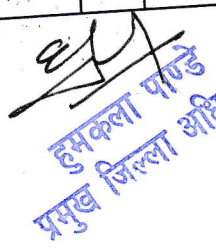 हुमकला पाण्डे
प्रमुख जिल्ला अधि